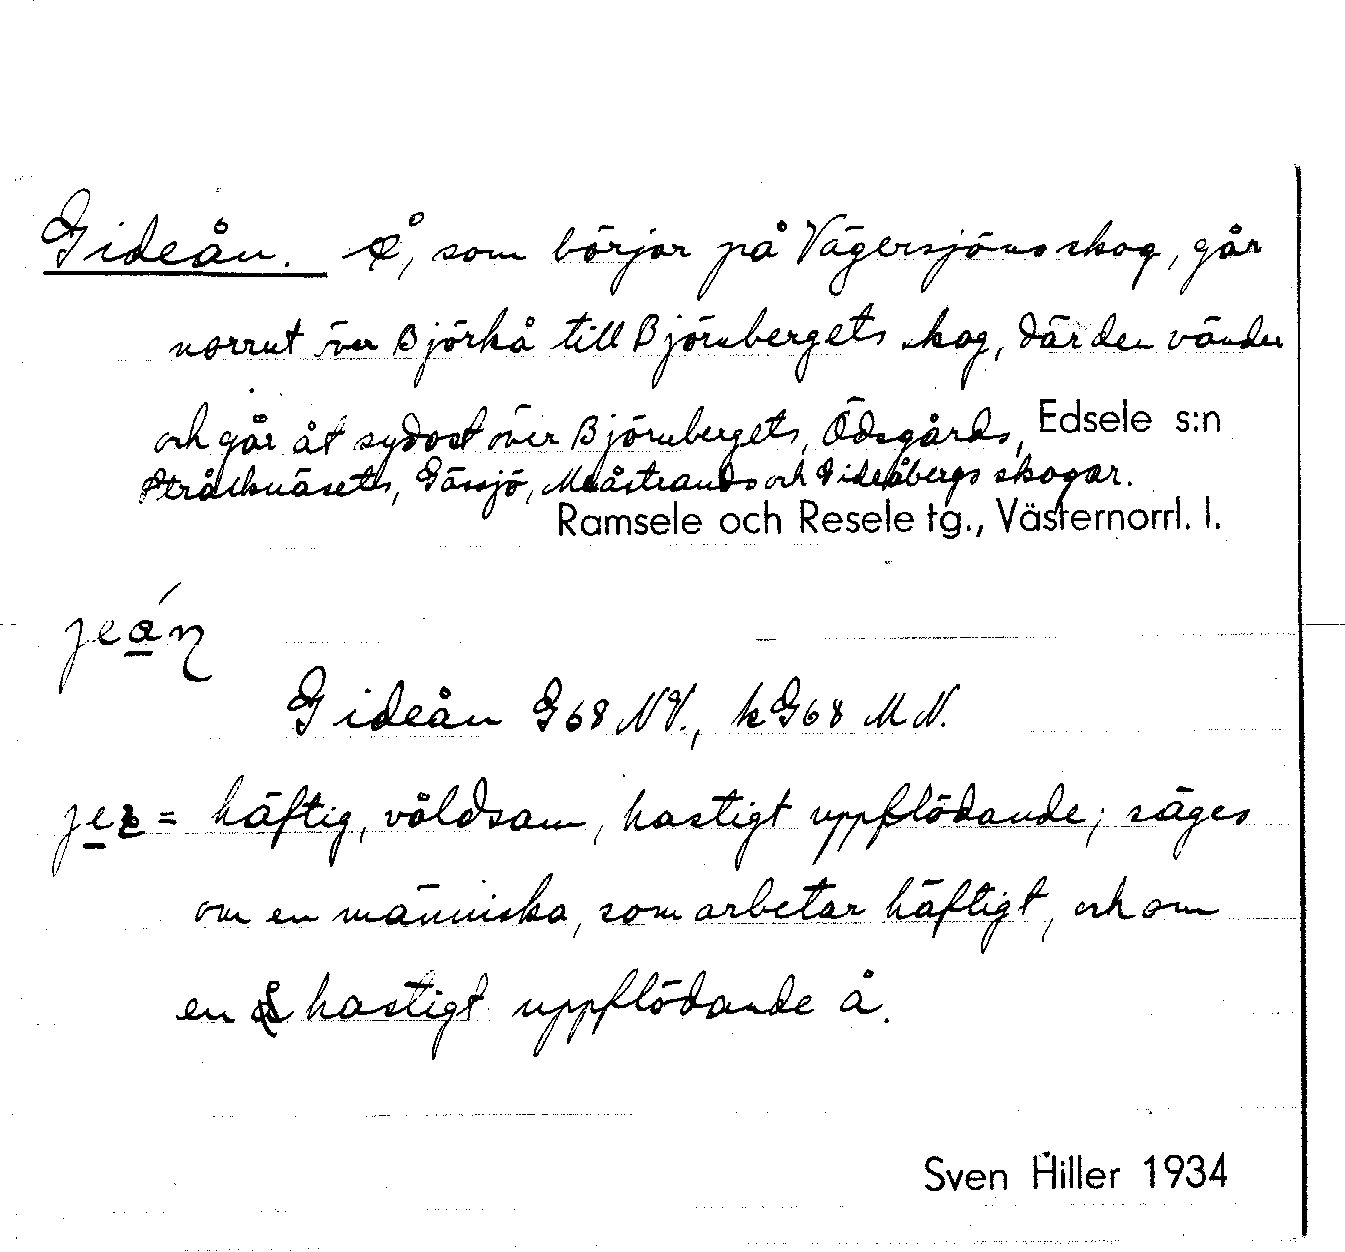 Gideån. Å, som börjar på Vägersjöns skog, går
norrut över Björkå till Björnbergets skog, där den vänder
och går åt sydost över Björnbergets, Ödsgårds,
Edsele s:n
Stråsknäsets, Gåssjö, Moåstrands och Gideåbergs skogar.
Ramsele och Resele tg., Västernorrl. l.
Gideån G68 NV., kG68 MN.
= häftig, våldsam, hastigt uppflödande; säges
om en människa, som arbetar häftigt, och om
en hastigt uppflödande å.
Sven Hiller 1934